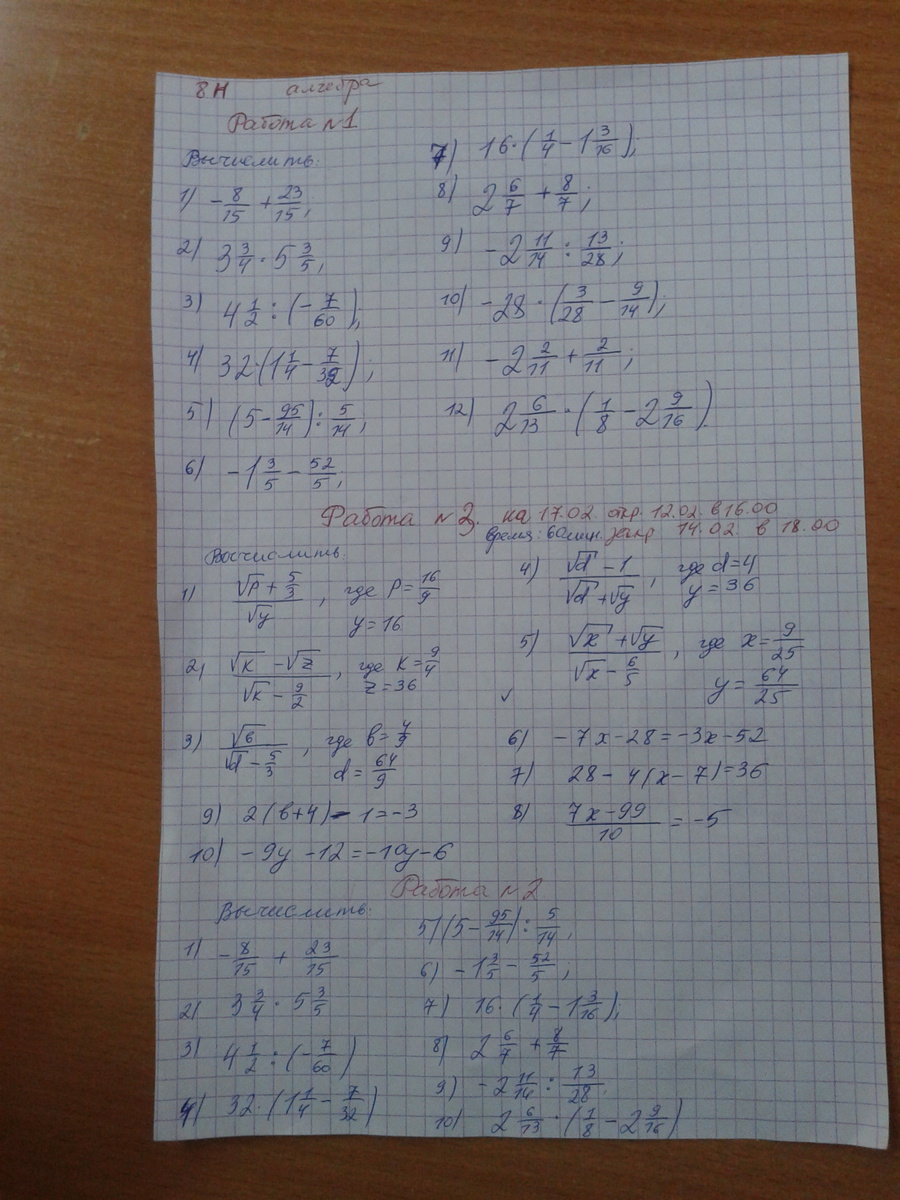 8Н алгебра
Работа №1
Вычислить:
1) -8/15 + 23/15;
2) 3 3/4 · 5 3/5;
3) 4 1/2 : (-7/60);
4) 32·(1 1/4 - 7/32);
5) (5 - 95/14) : 5/14;
6) -1 3/5 - 52/5;
7) 16·(1/4 - 1 3/16);
8) 2 6/7 + 8/7;
9) -2 11/14 : 13/28;
10) -28 · (3/28 - 9/14);
11) -2 2/11 + 2/11;
12) 2 6/13 · (1/8 - 2 9/16).
Работа №3. на 17.02 откр. 12.02. в 16.00
время: 60мин. закр 14.02. в 18.00
Вычислить
1) (√p + 5/3)/√y, где p = 16/9
y = 16
2) (√k - √z)/(√k - 9/2), где k = 9/4
z = 36
3) √b/(√d - 5/3), где b = 4/9
d = 64/9
4) (√d - 1)/(√d + √y), где d = 4
y = 36
5) (√x + √y)/(√x - 6/5), где x = 9/25
y = 64/25
6) -7x - 28 = -3x - 52
7) 28 - 4(x - 7) = 36
8) (7x - 99)/10 = -5
9) 2(b+4) - 1 = -3
10) -9y - 12 = -10y - 6
Работа №2
Вычислить:
1) -8/15 + 23/15
2) 3 3/4 · 5 3/5
3) 4 1/2 : (-7/60)
4) 32·(1 1/4 - 7/32)
5) (5 - 95/14) : 5/14;
6) -1 3/5 - 52/5;
7) 16·(1/4 - 1 3/16);
8) 2 6/7 + 8/7
9) -2 11/14 : 13/28.
10) 2 6/13 · (1/8 - 2 9/16)